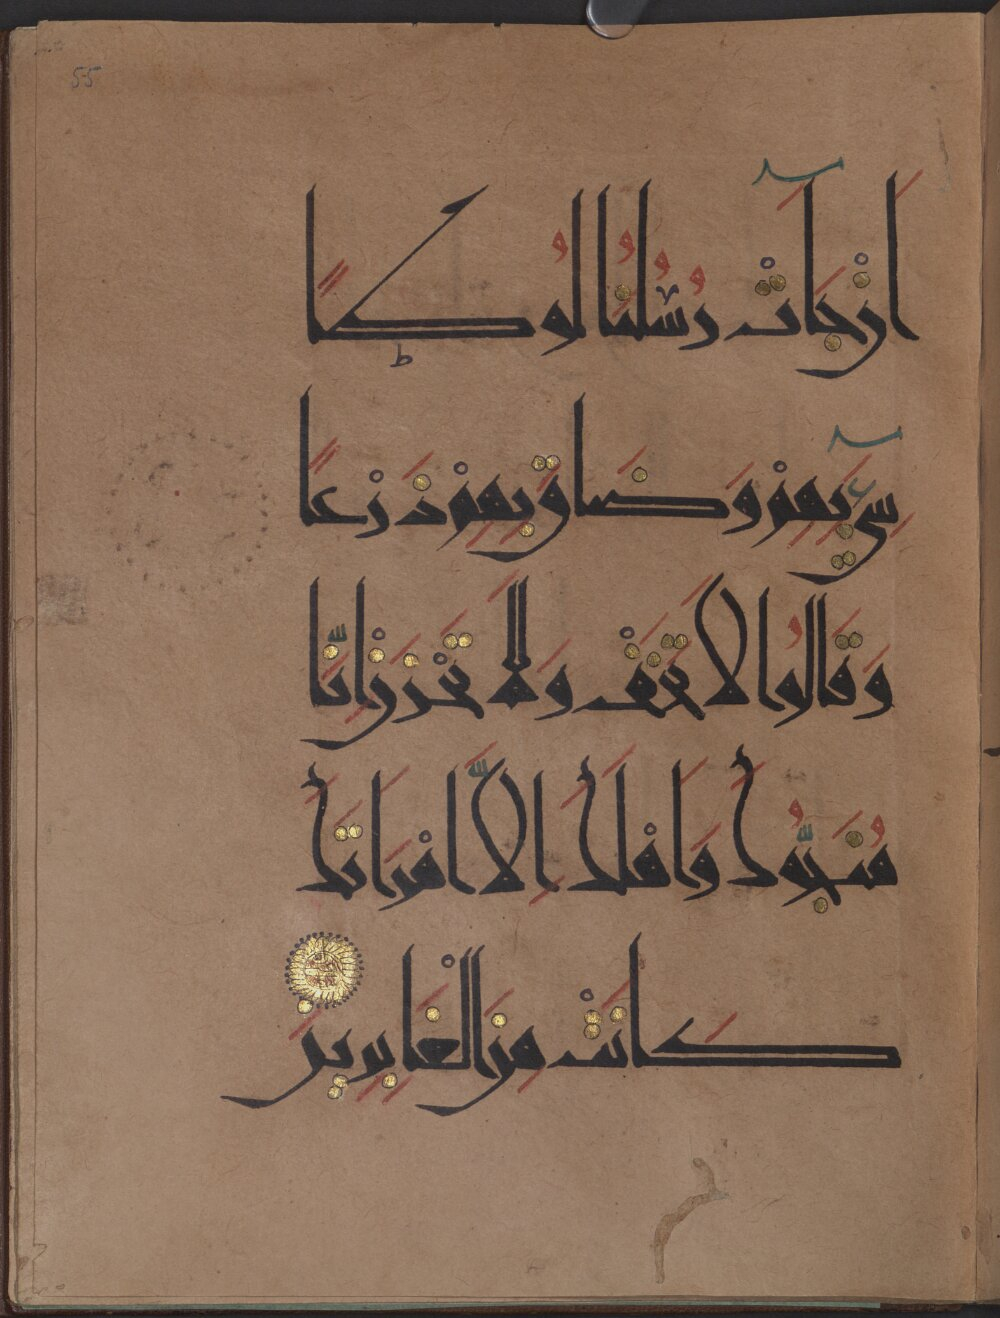 55
اَنْ جَآءَتْ رُسُلُنَا لُوطًا
سِيءَ بِهِمْ وَضَاقَ بِهِمْ ذَرْعًا
وَقَالُوا لَا تَخَفْ وَلَا تَحْزَنْ اِنَّا
مُنَجُّوكَ وَاَهْلَكَ اِلَّا امْرَاَتَكَ
كَانَتْ مِنَ الْغَابِرِينَ